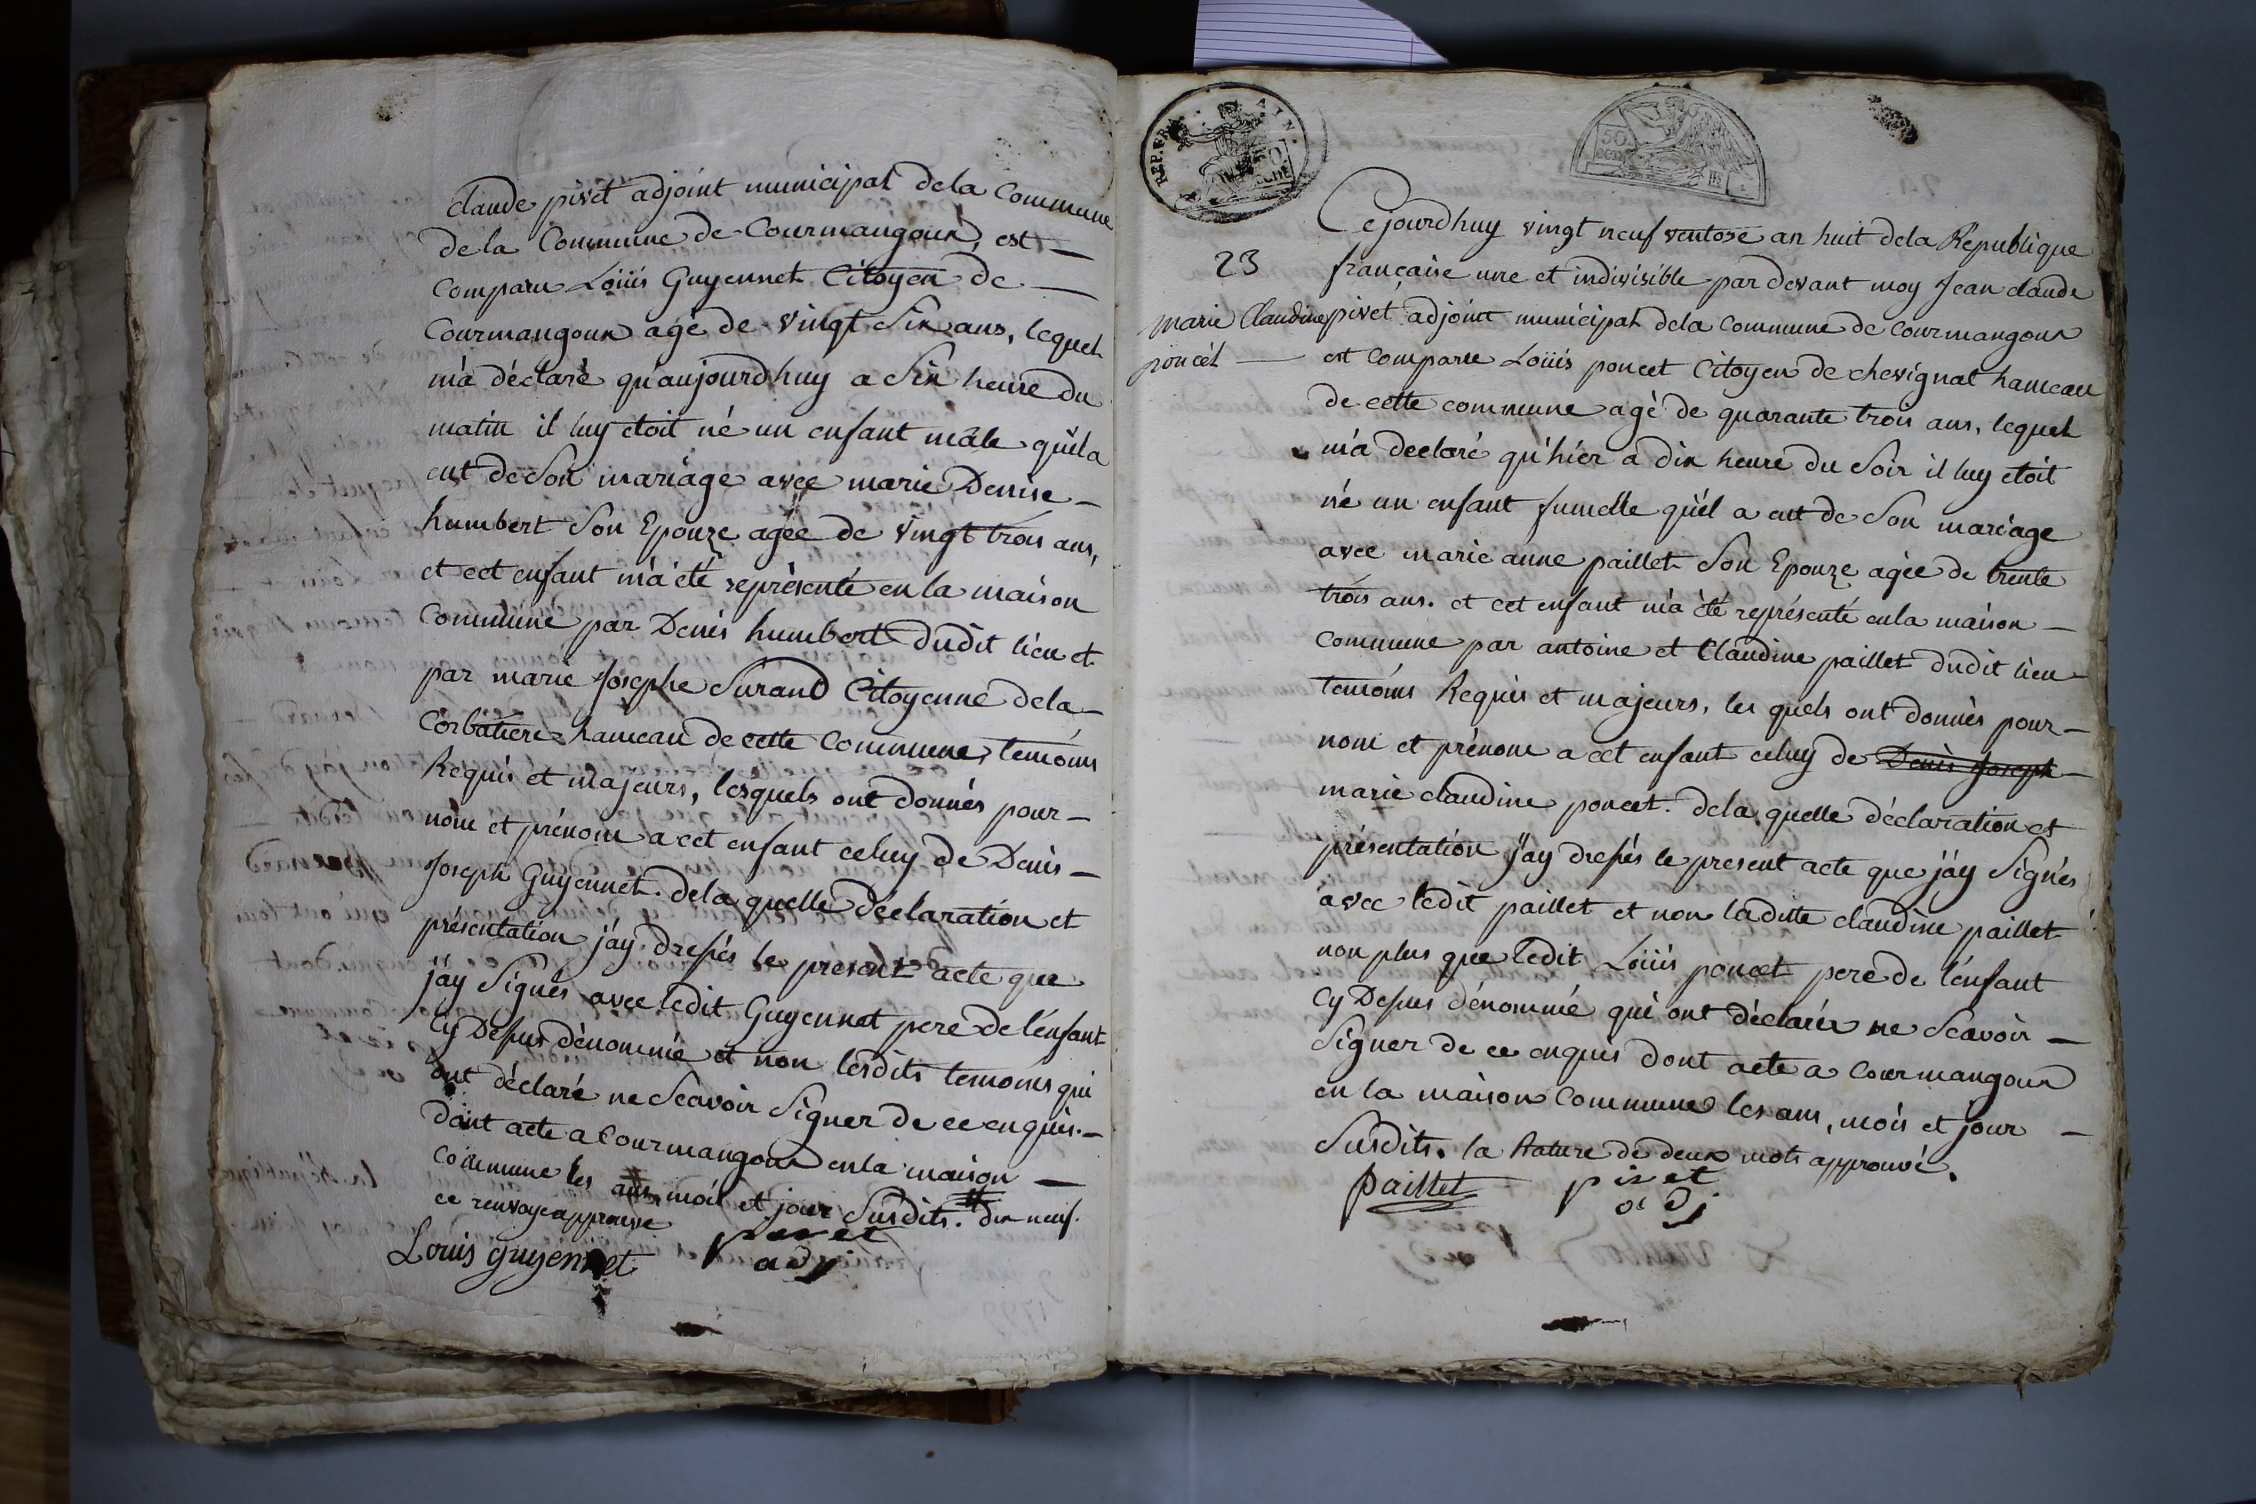 claude pivet adjoint municipal dela Commune
de la Commune de Courmangoux, est —
comparu Loüis Guyennet Citoyen de —
Courmangoux agé de vingt Six ans, lequel
m'a déclaré qu'aujourdhuy a Six heure du
matin il luy etoit né un enfant mâle qu'il a
eut de Son mariage avec marie Denise —
humbert Son Epouze agée de vingt trois ans,
et cet enfant m'a été représenté en la maison
Commune par Denis humbert dudit lieu et
par marie Josephe Surand Citoyenne dela —
Corbatiere hameau de cette Commune, temoins
Requis et majeurs, lesquels ont donnés pour —
nom et prénom a cet enfant celuy de Denis —
Joseph Guyennet. dela quelle déclaration et
présentation j'ay dressés le présent acte que
j'ay Signés avec ledit Guyennet pere de l'enfant
Cy Dessus dénommé et non lesdits temoins qui
ont déclaré ne Scavoir Signer de ce enquis. —
dont acte a Courmangoux en la maison —
Commune les ans, mois et jour Susdits. # dix neuf.
ce renvoye approuvé
Louis guyennet pivet
adj
REP. FRA. AIN.
50 CME
23
marie Claudine
poncet —
Cejourdhuy vingt neuf ventose an huit dela Republique
française une et indivisible par devant moy Jean claude
pivet adjoint municipal dela Commune de Courmangoux
est Comparu Loüis poncet Citoyen de chevignat hameau
de cette commune agé de quarante trois ans, lequel
m'a declaré qu'hier a dix heure du Soir il luy etoit
né un enfant fumelle qu'il a eut de Son mariage
avec marie anne paillet Son Epouze agée de trente
trois ans. et cet enfant m'a été représenté en la maison —
Commune par antoine et Claudine paillet dudit lieu
temoins Requis et majeurs, les quels ont donnés pour —
nom et prénom a cet enfant celuy de Denis Joseph —
marie claudine poncet. dela quelle déclaration et
présentation j'ay dressés le present acte que j'ay Signés
avec ledit paillet et non laditte claudine paillet
non plus que ledit Loüis poncet pere de l'enfant
Cy Dessus dénommé qui ont déclarés ne Scavoir —
Signer de ce enquis dont acte a Courmangoux
en la maison Commune les ans, mois et jour —
Susdits. la Rature de deux mots approuvé.
paillet pivet
adj